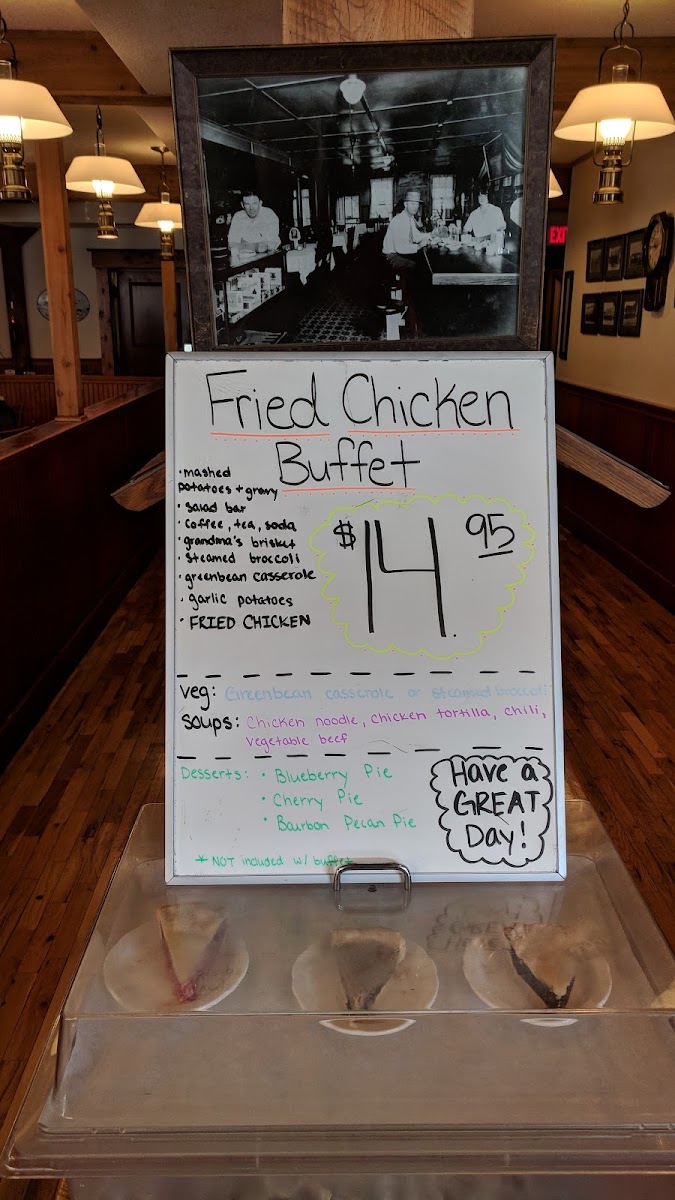 EXIT
Fried Chicken
Buffet
• mashed
potatoes + gravy
• salad bar
• coffee, tea, soda
• grandma's brisket
• steamed broccoli
• greenbean casserole
• garlic potatoes
• FRIED CHICKEN
$14.95
veg: Greenbean casserole or steamed broccoli
soups: Chicken noodle, chicken tortilla, chili,
vegetable beef
Desserts: • Blueberry Pie
• Cherry Pie
• Bourbon Pecan Pie
* NOT included w/ buffet
Have a
GREAT
Day!